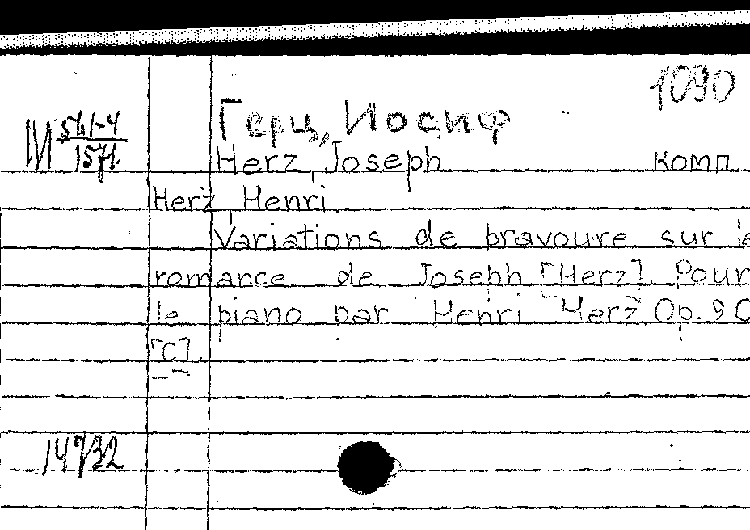 1090
М 561-4
1571
Герц, Иосиф
Herz, Joseph комп
Herz Henri
Variations de bravoure sur le
romance de Joseph [Herz]. Pour
le piano par Henri Herz Op. 90
[C].
14732